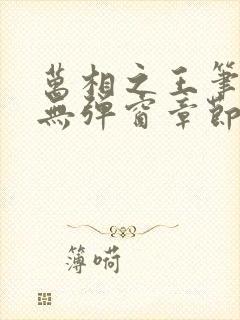 萬相之王筆
無彈窗章節
簿嗬